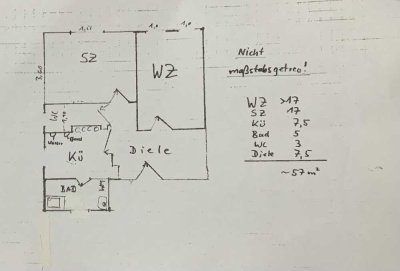 1,0
1,0
SZ
WZ
WC
Kü
Diele
BAD
Nicht
maßstabsgetreu!
WZ >17
SZ 17
Kü 7,5
Bad 5
WC 3
Diele 7,5
~57 m²